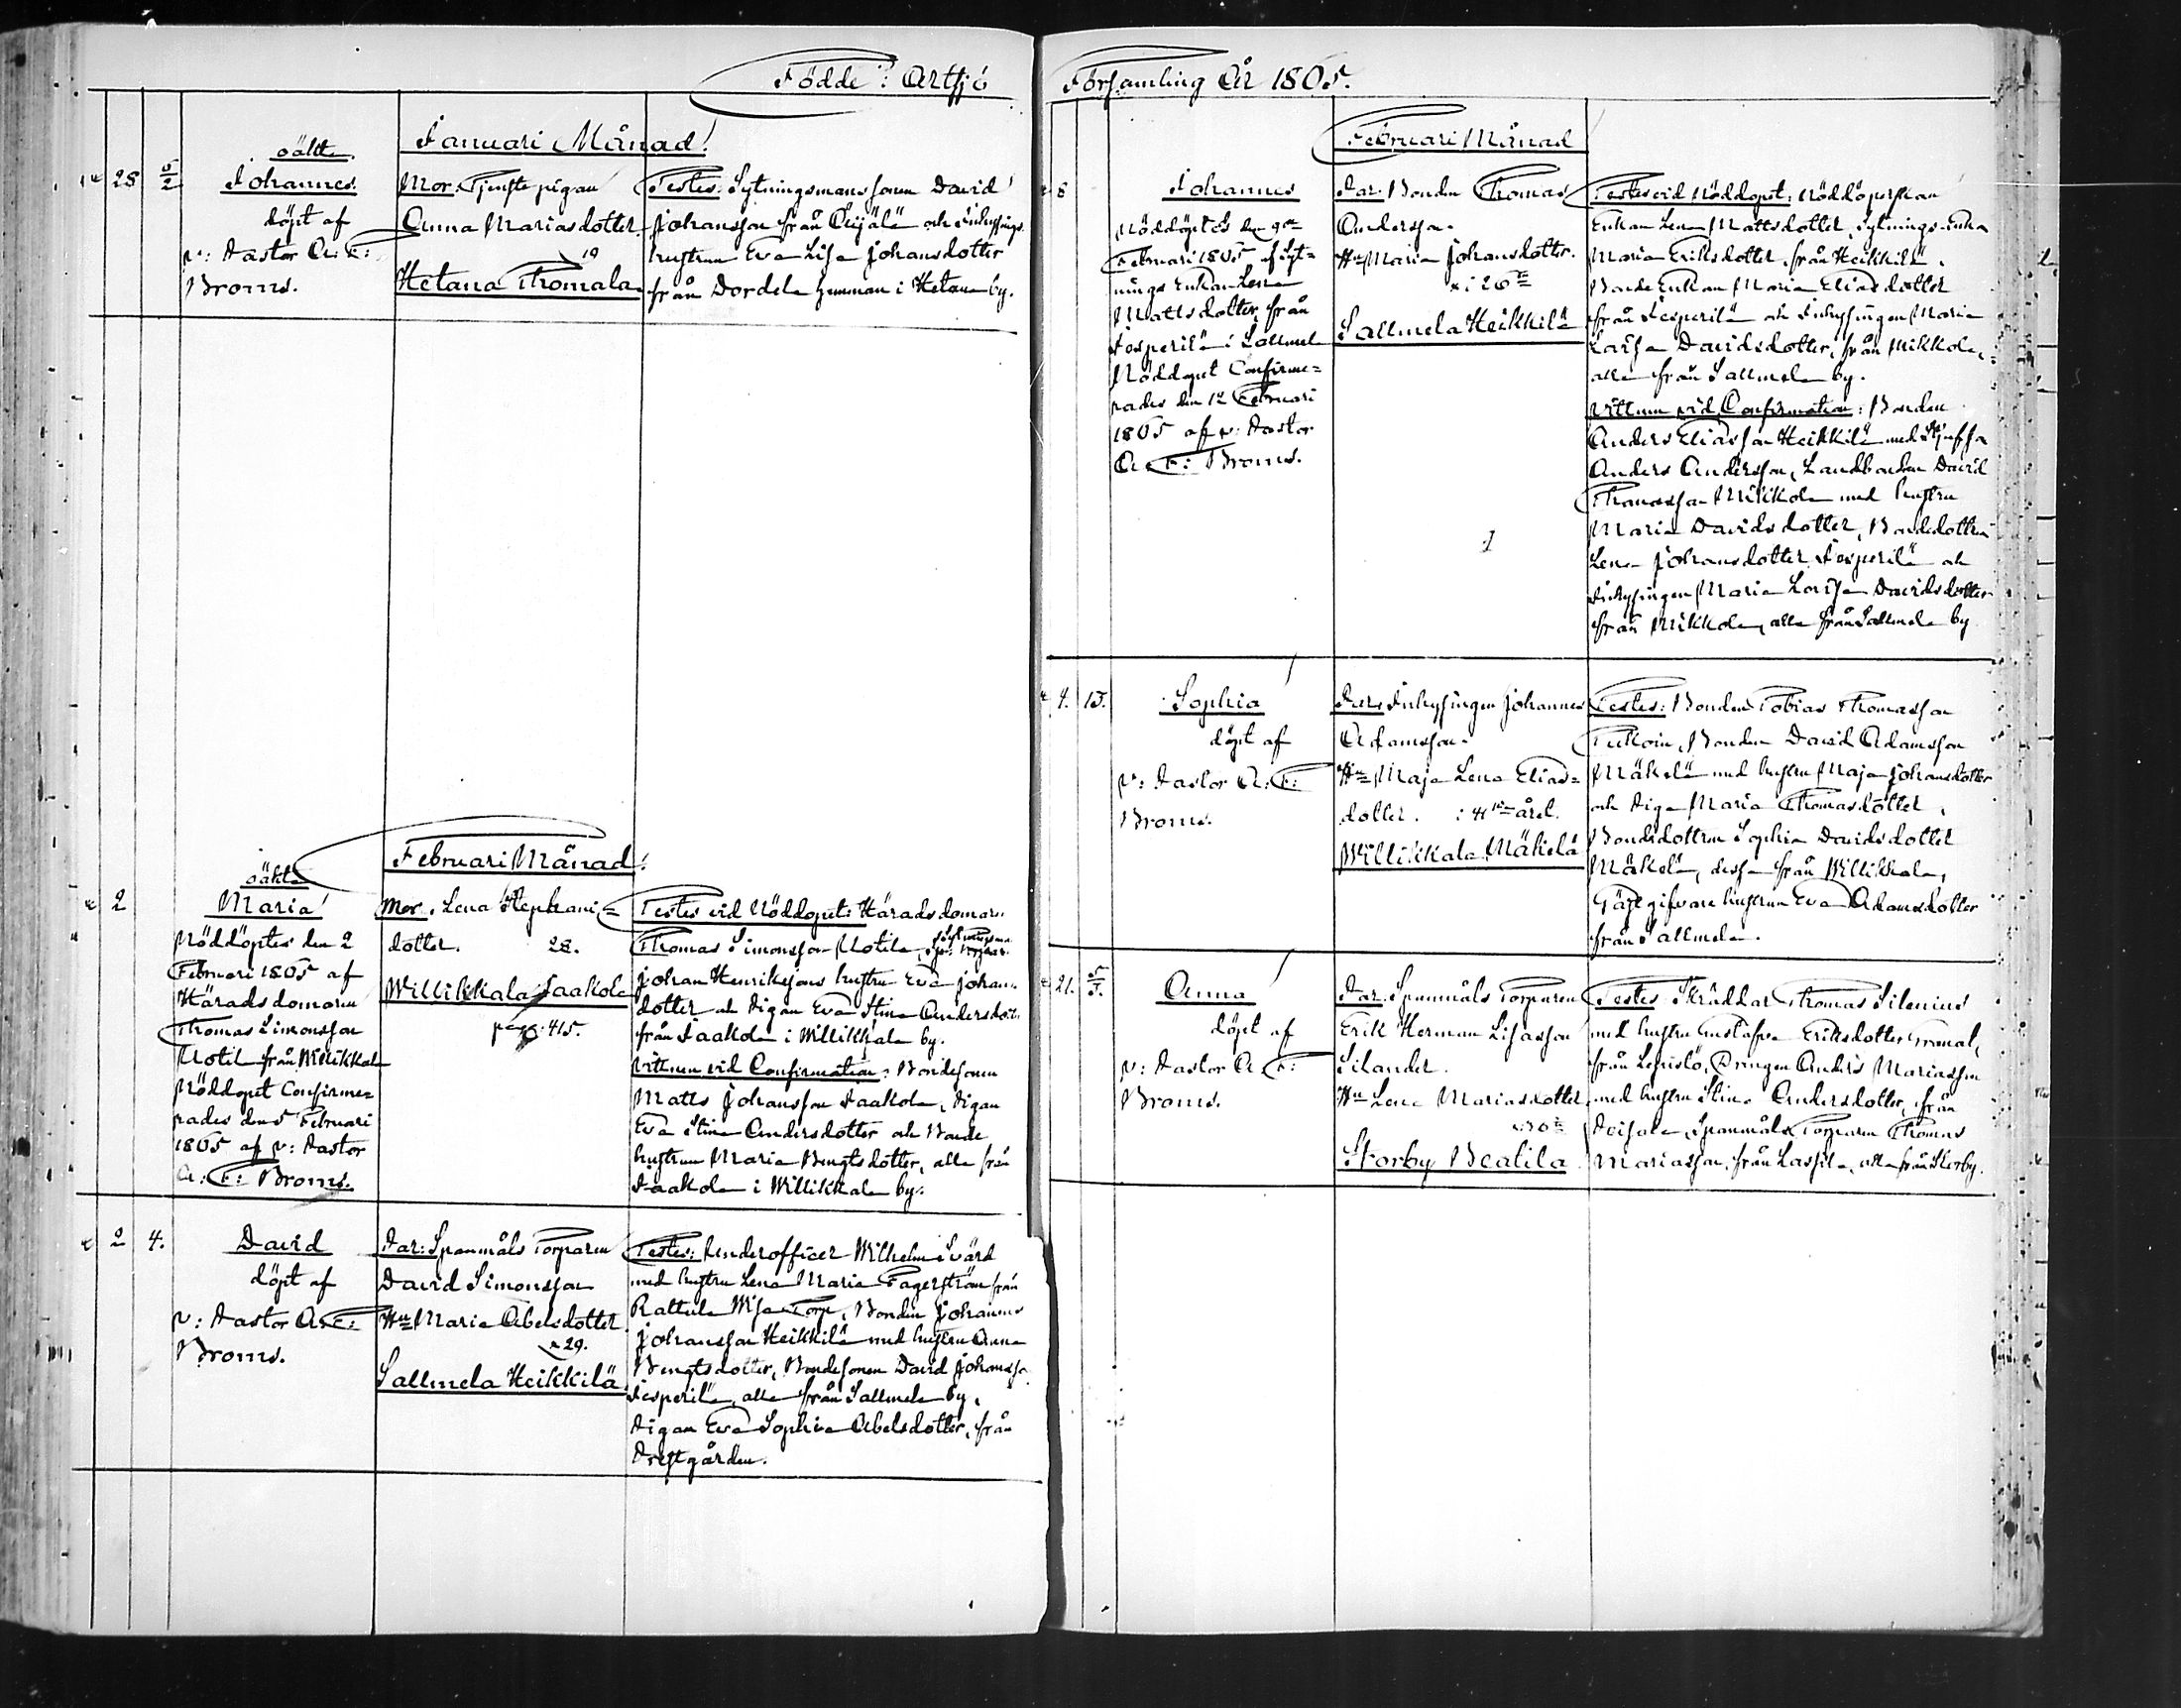 Födde i Artsjö
Januari Månad!
28 5/2
oäkta
Johannes
döpt af
v: Pastor A: F:
Broms.
Mor. Tjenstepigan
Anna Mariasdotter.
19
Hetana Thomala.
Testes: Sytningsmans sonen David
Johansson från och Inhysings
hustrun Eva Lisa Johansdotter
från Pordela hemman i Hetana by.
Februari Månad!
2
oäkta
Maria
Nöddöptes den 2
Februari 1805 af
Häradsdomaren
Thomas Simonsson
Uotil från Willikkala
Nöddopet Confirme=
rades den 5 Februari
1805 af v: Pastor
A: F: Broms.
Mor. Lena Stephani=
dotter. 28.
Willikkala Jaakola
pag: 415.
Testes vid Nöddopet: Häradsdomaren
Thomas Simonsson Uotila,
Johan Henrikssons hustru Eva Johans
dotter och Pigan Eva Stina Andersdotter
från Jaakola i Willikkala by.
Vittnen vid Confirmation: Bondesonen
Matts Johansson Jaakola, Pigan
Eva Stina Andersdotter och Bonde
hustrun Maria Bengtsdotter, alla från
Jaakola i Willikkala by.
2 4.
David
döpt af
v: Pastor A: F:
Broms.
Far: Spanmåls Torparen
David Simonsson
Hu Maria Abelsdotter
29.
Sallmela Heikkilä
Testes: Underofficer Wilhelm Svärd
med hustru Lena Maria Fagerström från
Rattula Torp, Bonden Johannes
Johansson Heikkilä med hustru Anna
Bengtsdotter, Bondesonen David Johansson
Jesperilä, alla från Sallmela by,
Pigan Eva Sophia Abelsdotter, från
Prestgården.
Församling År 1805.
Februari Månad
8
Johannes
Nöddöptes den 9de
Februari 1805 af Syt=
nings Enkan Lena
Mattsdotter, från
Jesperilä i Sallmela
Nöddopet Confirme=
rades den 12 Februari
1805 af v: Pastor
A: F: Broms.
Far: Bonden Thomas
Andersson.
Hu Maria Johansdotter.
i 26te
Sallmela Heikkilä
Testes vid Nöddopet: Nöddöperskan
Enkan Lena Mattsdotter, Sytnings Enka
Maria Eriksdotter, från Heikkilä,
Bonde Enkan Maria Eliasdotter
från Jesperilä och Inhysingen Maria
Lovisa Davidsdotter, från Mikkola,
alla från Sallmela by.
Vittnen vid Confirmation: Bonden
Anders Eliasson Heikkilä med
Anders Andersson, Landbonden David
Thomasson Mikkola med hustru
Maria Davidsdotter, Bondedottren
Lena Johansdotter Jesperilä och
Inhysingen Maria Lovisa Davidsdotter
från Mikkola, alla från Sallmela by
4. 15.
Sophia
döpt af
v: Pastor A: F:
Broms.
Far: Inhysingen Johannes
Adamsson.
Hu Maja Lena Elias=
dotter. i 41te året.
Willikkala Mäkelä
Testes: Bonden Tobias Thomasson
Tukoin, Bonden David Adamsson
Mäkelä med hustru Maja Johansdotter
och Piga Maria Thomasdotter,
Bondedottren Sophia Davidsdotter
Mäkelä, dessa från Willikkala,
Gästgifvare hustrun Eva Adamsdotter
från Sallmela.
21. 5/3.
Anna
döpt af
v: Pastor A: F:
Broms.
Far. Spanmåls Torparen
Erik Herman Lisasson
Silander.
Hu Lena Mariasdotter
30te
Storby Beatila
Testes Skräddar Thomas Silenius
med hustru Gustafva Eriksdotter
från Drengen Anders Mariasson
med hustru Stina Andersdotter, från
Spanmåls Torparen Thomas
Mariasson, från Lassila, alla från Storby.